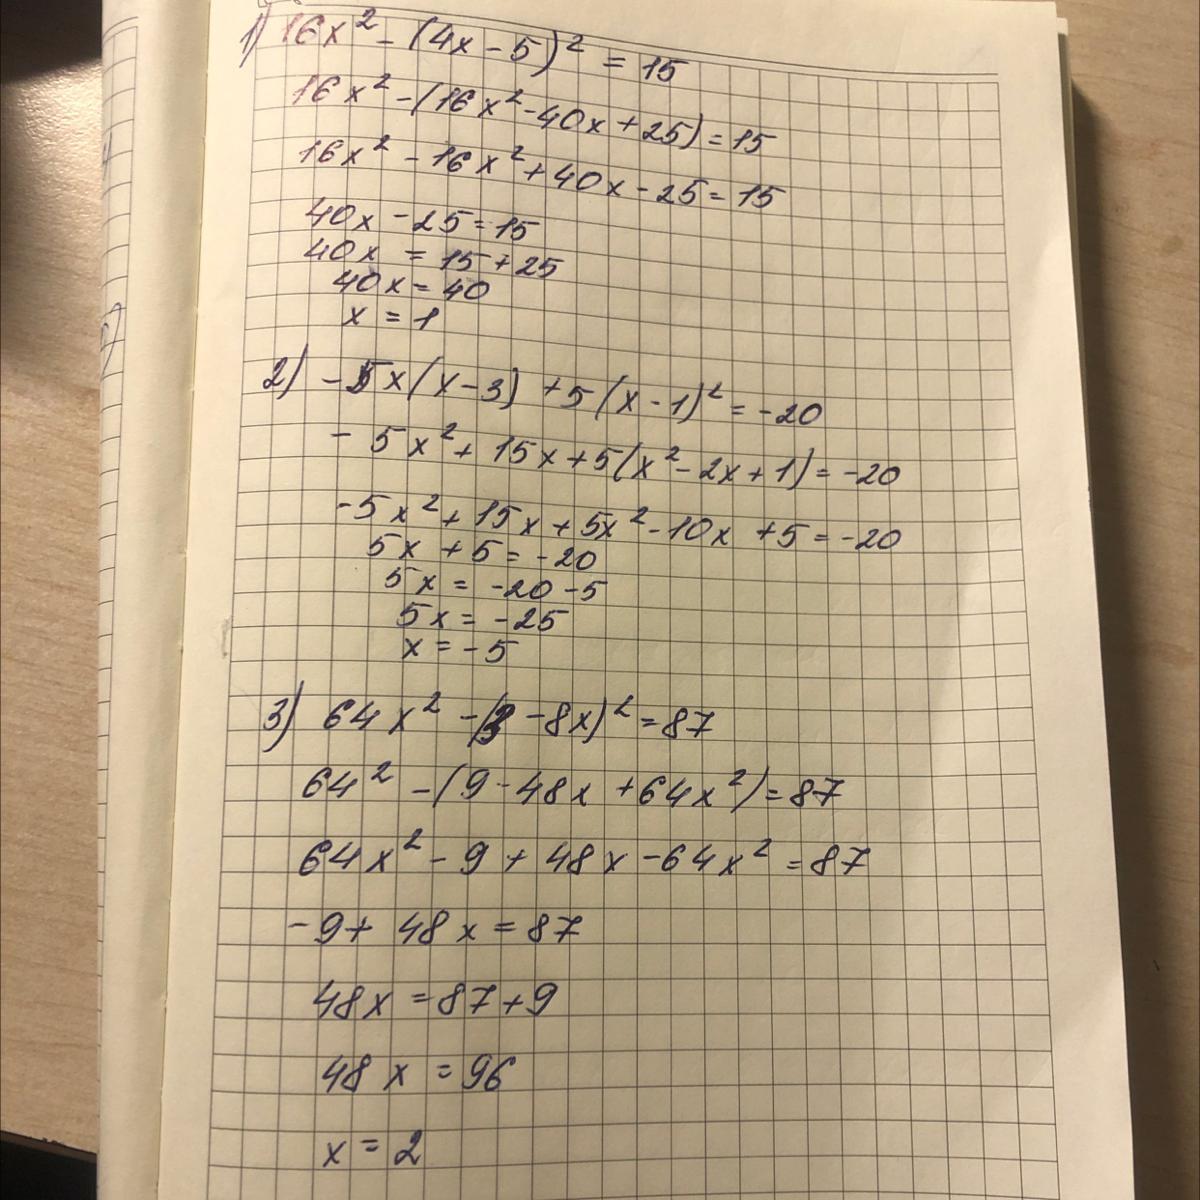 1) 16x² - (4x - 5)² = 15
16x² - (16x² - 40x + 25) = 15
16x² - 16x² + 40x - 25 = 15
40x - 25 = 15
40x = 15 + 25
40x = 40
x = 1
2) - 5x(x - 3) + 5(x - 1)² = -20
- 5x² + 15x + 5(x² - 2x + 1) = -20
-5x² + 15x + 5x² - 10x + 5 = -20
5x + 5 = -20
5x = -20 - 5
5x = -25
x = -5
3) 64x² - (3 - 8x)² = 87
64² - (9 - 48x + 64x²) = 87
64x² - 9 + 48x - 64x² = 87
- 9 + 48x = 87
48x = 87 + 9
48x = 96
x = 2